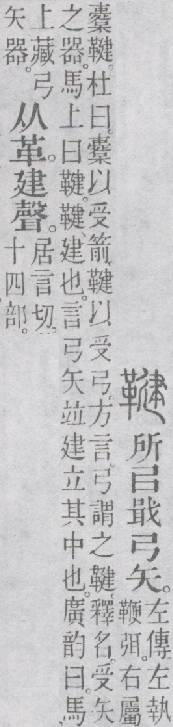 鞬所㠯戢弓矢。
左傳左執
鞭弭。右屬
櫜鞬。杜曰。櫜以受箭。鞬以受弓。方言。弓謂之鞬。釋名。受矢
之器。馬上曰鞬。鞬建也。言弓矢竝建立其中也。廣韵曰。馬
上藏弓
矢器。
从革。建聲。
居言切
十四部。